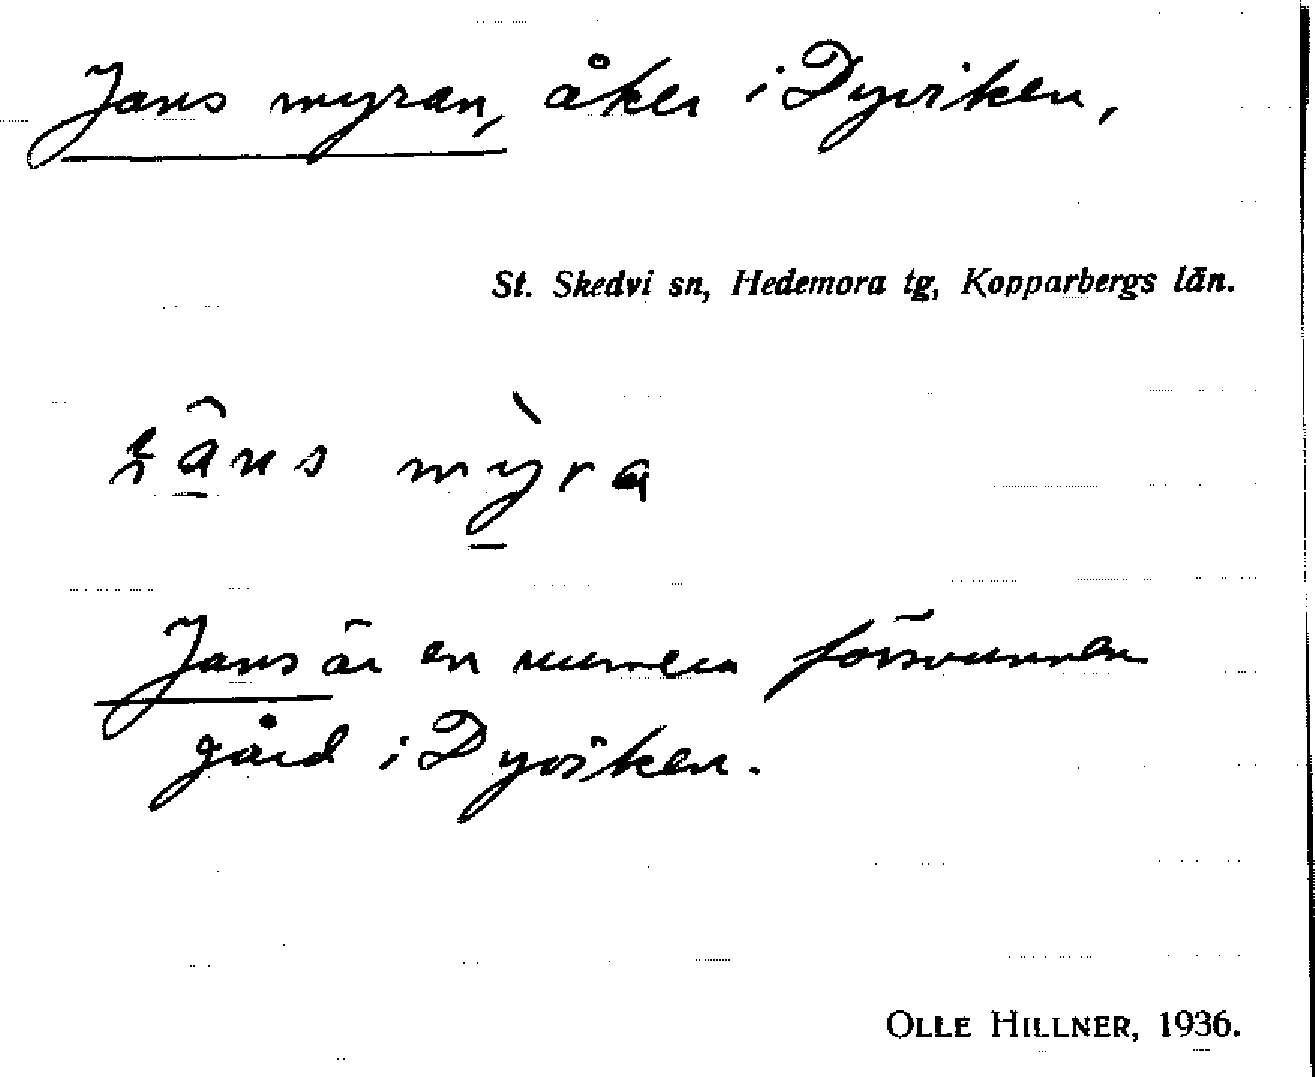 Jans myran, åker i Dyviken,
St. Skedvi sn, Hedemora tg, Kopparbergs län.
myra
Jans är en numera försvunnen
gård i Dyviken.
OLLE HILLNER, 1936.